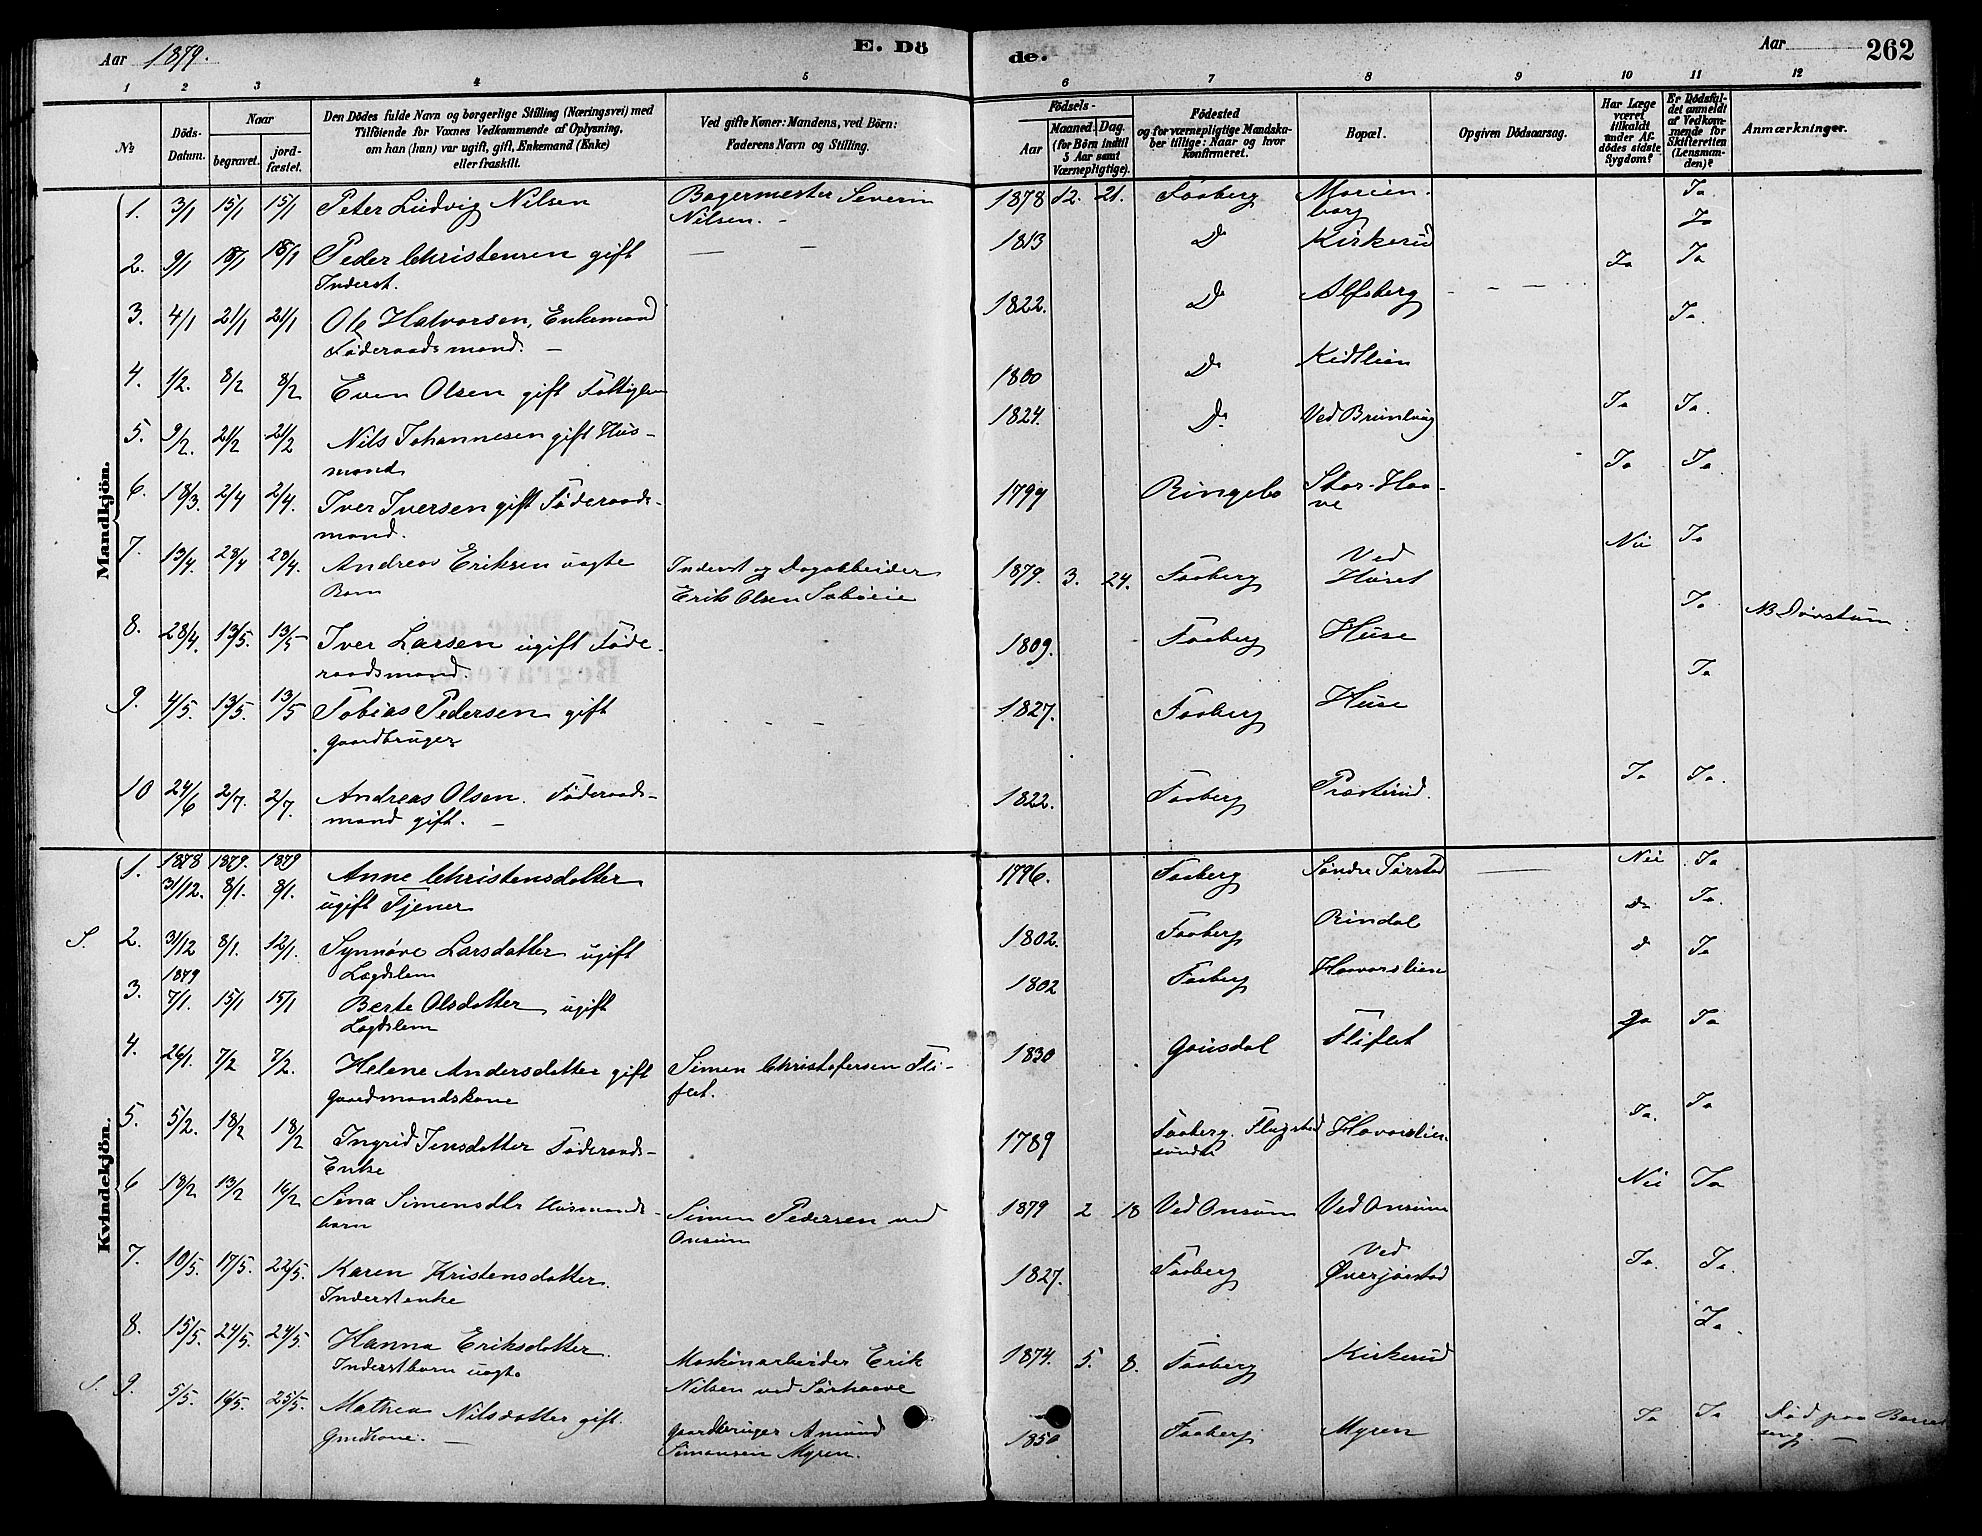 Aar 1879.
E. Dö
de.
Aar
262
1 2 3 4 5 6 7 8 9 10 11 12
№
Döds-Datum.
Naar
begravet.
jordfæstet.
Den Dödes fulde Navn og borgerlige Stilling (Næringsvei) med
Tilföiende for Voxnes Vedkommende af Oplysning,
om han (hun) var ugift, gift, Enkemand (Enke)
eller fraskilt.
Ved gifte Koner: Mandens, ved Börn:
Faderens Navn og Stilling.
Födsels-
Aar
Maaned. Dag.
(for Börn indtil
5 Aar samt
Værnepligtige).
Födested
og for værnepligtige Mandskaber tillige: Naar og hvor
Konfirmeret.
Bopæl.
Opgiven Dödsaarsag.
Har Læge
været
tilkaldt
under Afdödes sidste
Sygdom?
Er Dödsfaldet anmeldt
af Vedkommende for
Skifteretten
(Lensmanden)?
Anmærkninger.
Mandkjön.
1. 3/1 15/1 15/1 Peter Ludvig Nilsen Bagermester Severin 1878 12. 21. Faaberg Marien- Ja
Nilsen. borg
2. 9/1 18/1 18/1 Peder Christensen gift 1813 Do Kirkerud Ja Ja
Inderst.
3. 4/1 21/1 21/1 Ole Halvorsen, Enkemand 1822. Do Alfsberg Ja.
Föderaadsmand.
4. 1/2. 8/2 8/2 Even Olsen gift 1800 Do Kidtlien Ja Ja.
5. 9/2. 21/2 21/2 Nils Johannesen gift Hus- 1824. Do Ved Brunlaug Ja Ja.
mand
6. 18/3. 2/4 2/4. Iver Iversen gift Föderaads- 1797 Ringebo Stor-Haa-
mand. ve
7. 13/4. 28/4 28/4. Andreas Eriksen uægte Inderst og Dagarbeider 1879. 3. 24. Faaberg Ved Nei Ja
Barn Erik Olsen Hüset
8. 28/4. 13/5. 13/5 Iver Larsen ugift Föde- 1809. Faaberg Huse Ja NB Dövstum.
raadsmand.
9. 4/5. 13/5. 13/5 Tobias Pedersen gift 1827. Faaberg Huse Ja
gaardbruger
10 24/6 2/7. 2/7. Andreas Olsen. Föderaads- 1822. Faaberg Præsterud. Ja Ja.
mand gift.
Kvindekjön.
1. 1878 1879. 1879
31/12. 8/1. 8/1. Anne Christensdatter 1796. Faaberg Söndre Jörstad Nei Ja
ugift Tjener
S. 2. 31/12 8/1. 12/1. Synnöve Larsdatter ugift 1802. Faaberg Rindal Do Ja.
Lægdslem
1879
3. 7/1. 15/1 15/1 Berte Olsdatter ugift 1802 Faaberg Haavarslien Do Ja
Lægdslem
4. 26/1. 7/2 7/2. Helene Andersdatter gift Simen Christofersen Fli- 1830 Gausdal Fliflet Ja Ja
gaardmandskone flet.
5. 5/2. 18/2 18/2 Ingrid Jensdatter Föderaads- 1789 Faaberg. Flugstad Havarslien Ja. Ja
Enke söndre
6 13/2 16/2 Sina Simensdtr Husmands- Simen Pedersen ved 1879 2 18 Ved Onsum Ved Onsum Nei Ja
barn Onsum
7. 10/5. 17/5. 22/5. Karen Kristensdatter. 1827. Faaberg Ved Ja. Ja.
Inderstenke Överjörstad
8. 15/5. 24/5. 24/5. Hanna Eriksdatter. Maskinarbeider Erik 1874. 5. 8. Faaberg Kirkerud Ja.
Inderstbarn uægte Nilsen ved Sörhaave
S. 9. 5/5. 16/5. 25/5. Mathea Nilsdatter gift. gaardbruger Amund 1850 Faaberg. Myren Ja Ja Död paa Barsel-
Gmdkone. Simensen Myren. seng.